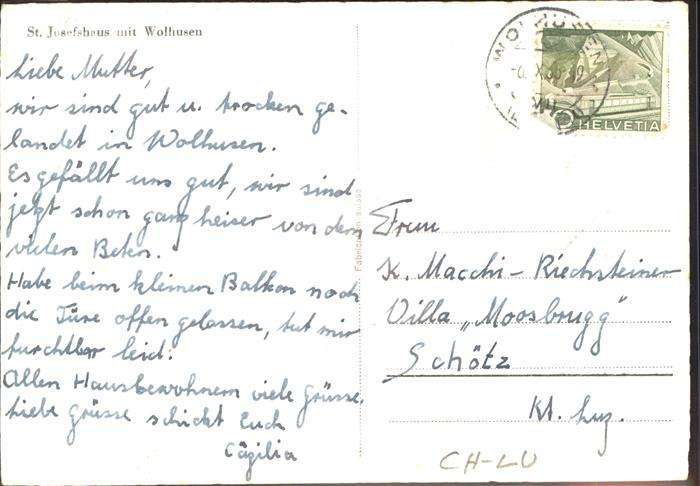 St. Josefshaus mit Wolhusen
Liebe Mutter,
wir sind gut u. trocken ge-
landet in Wolhusen.
Es gefällt uns gut, wir sind
jetzt schon ganz heiser von dem
vielen Beten.
Habe beim kleinen Balkon noch
die Türe offen gelassen, tut mir
furchtbar leid!
Allen Hausbewohnern viele Grüsse.
Liebe Grüsse schickt Euch
Cäzilia
WOLHUSEN
HELVETIA
Frau
K. Macchi-Riechsteiner
Villa "Moosbrugg"
Schötz
Kt. Luz.
CH-LU